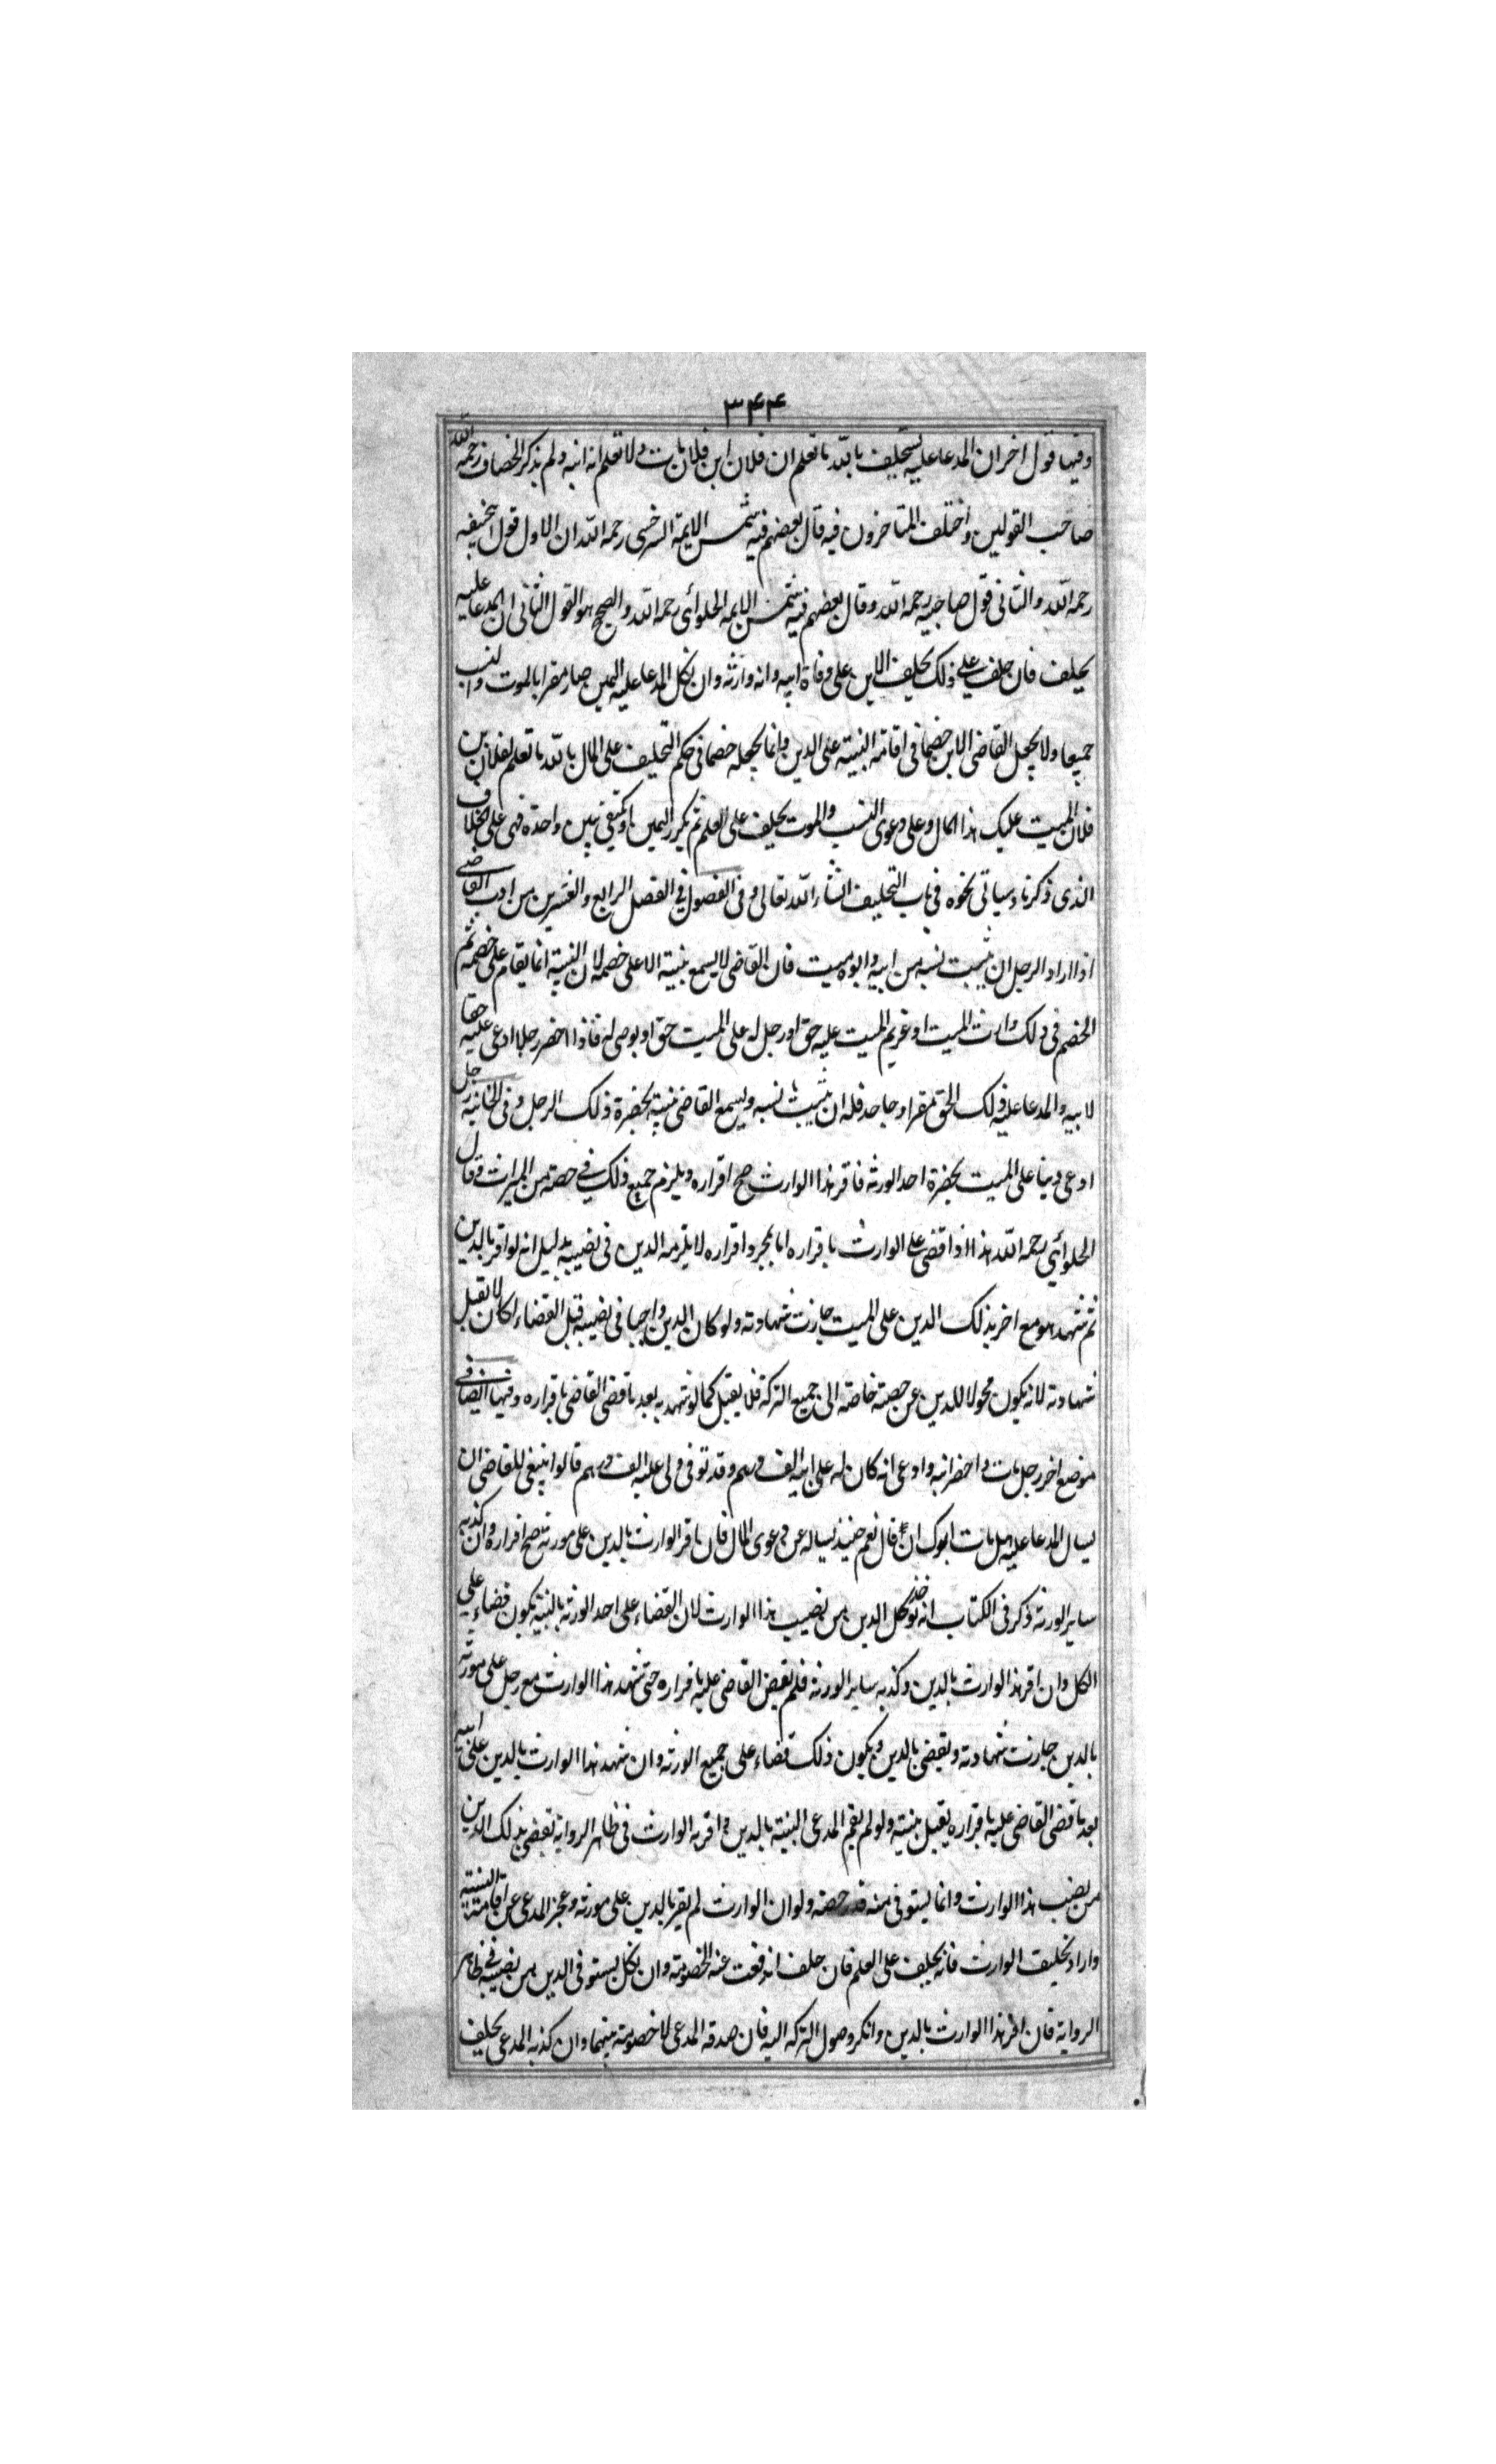 ٣٤٤
وفيها قول اخر ان المدعا عليه يستحلف بالله ما تعلم ان فلان ابن فلان مات ولا تعلم انه ابنه ولم يذكر الخصاف رحمه الله
صاحب القولين واختلف المتاخرون فيه قال بعضهم فيه شمس الايمة السرخسى رحمه الله ان الاول قول ابيحنيفه
رحمه الله والثانى قول صاحبيه رحمه الله وقال بعضهم فيه شمس الايمه الحلوائى رحمه الله والصحيح هو القول الثانى ان المدعا عليه
يحلف فان حلف على ذلك يحلف الابن على وفاة ابيه وانه وارثه وان نكل المدعا عليه اليمين صار مقرا بالموت والنسب
جميعا ولا يجعل القاضى الابن خصما فى اقامة البينة على الدين وانما يجعله خصما فى حكم التحليف على المال بالله ما تعلم لفلان بن
فلان الميت عليك هذا المال وعلى دعوى النسب والموت يحلف على العلم ثم يكرر اليمين او يكتفى بيمين واحدة فهى على الخلاف
الذى ذكرناه وسياتى نحوه فى باب التحليف انشاء الله تعالى وفى الفصول فى الفصل الرابع والعشرين من ادب القاضى
اذا اراد الرجل ان يثبت نسبه من ابيه وابوه ميت فان القاضى لا يسمع بينته الا على خصمه لان البينة انما يقام على خصمه ثم
الخصم فى ذلك وارث الميت او غريم الميت عليه حق او رجل له على الميت حق او يوصى له فاذا احضر رجلا ادعى عليه حقا
لابيه والمدعا عليه لذلك الحق مقر او جاحد فله ان يثبت نسبه ويسمع القاضى بينته بحضرة ذلك الرجل وفى الخانية رجل
ادعى دينا على الميت بحضرة احد الورثه فاقر هذا الوارث صح اقراره ويلزم جميع ذلك فى حصته من الميراث وقال
الحلوائى رحمه الله هذا اذا قضى على الوارث باقراره اما بمجرد اقراره لا يلزمه الدين فى نصيبه بدليل انه لو اقر بالدين
ثم شهد هو مع اخر بذلك الدين على الميت جازت شهادته ولو كان الدين واجبا فى نصيبه قبل القضاء لكان لا تقبل
شهادته لانه يكون محولا للدين عن حصته خاصة الى جميع التركة فلا يقبل كما لو شهد به بعد ما قضى القاضى باقراره وفيها ايضا فى
موضع اخر رجل مات واحضر ابنه وادعى انه كان له على ابيه الف درهم وقد توفى ولى عليه الف درهم قالوا ينبغى للقاضى ان
يسال المدعا عليه هل مات ابوك ان قال نعم حينئذ يساله عن دعوى المال فان اقر الوارث بالدين على مورثه صح اقراره وان كذبه
ساير الورثة ذكر فى الكتاب انه يؤخذ كل الدين من نصيب هذا الوارث لان القضاء على احد الورثه بالبينة يكون قضاء على
الكل وان اقر هذا الوارث بالدين وكذبه ساير الورثة فلم يقض القاضى عليه باقراره حتى شهد هذا الوارث مع رجل على مورثه
بالدين جازت شهادته ويقضى بالدين ويكون ذلك قضاء على جميع الورثه وان شهد هذا الوارث بالدين على ابيه
بعد ما قضى القاضى عليه باقراره يقبل بينته ولو لم يقم المدعى البينة بالدين واقر به الوارث فى ظاهر الرواية يقضى بذلك الدين
من نصيب هذا الوارث وانما يستوفى منه قدر حصته ولو ان الوارث لم يقر بالدين على مورثه وعجز المدعى عن اقامة البينة
واراد تحليف الوارث فانه يحلف على العلم فان حلف اندفعت عنه الخصومة وان نكل يستوفى الدين من نصيبه فى ظاهر
الرواية فان اقر هذا الوارث بالدين وانكر وصول التركه اليه فان صدقه المدعى لا خصومة بينهما وان كذبه المدعى يحلف